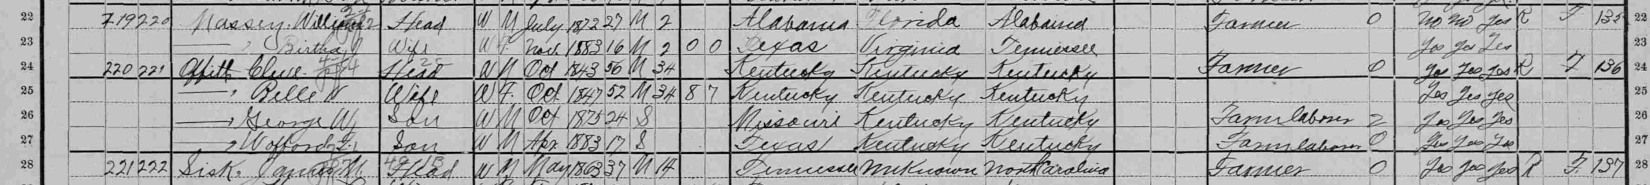 22 719 220 Massey, William Head W M July 1872 27 M 2 Alabama Florida Alabama Farmer 0 No No Yes R F 135 22
23 —, Birtha Wife W F Nov 1883 16 M 2 0 0 Texas Virginia Tennessee Yes Yes Yes 23
24 220 221 Clive Head W M Oct 1843 56 M 34 Kentucky Kentucky Kentucky Farmer 0 Yes Yes Yes R F 136 24
25 —, Belle Wife W F Oct 1847 52 M 34 8 7 Kentucky Kentucky Kentucky Yes Yes Yes 25
26 —, George W Son W M Oct 1875 24 S Missouri Kentucky Kentucky Farm laborer 2 Yes Yes Yes 26
27 —, Son W M Apr 1883 17 S Texas Kentucky Kentucky Farm laborer 0 Yes Yes Yes 27
28 221 222 Sisk, James M Head W M May 1863 37 M 14 Tennessee Unknown North Carolina Farmer 0 Yes Yes Yes R F 137 28